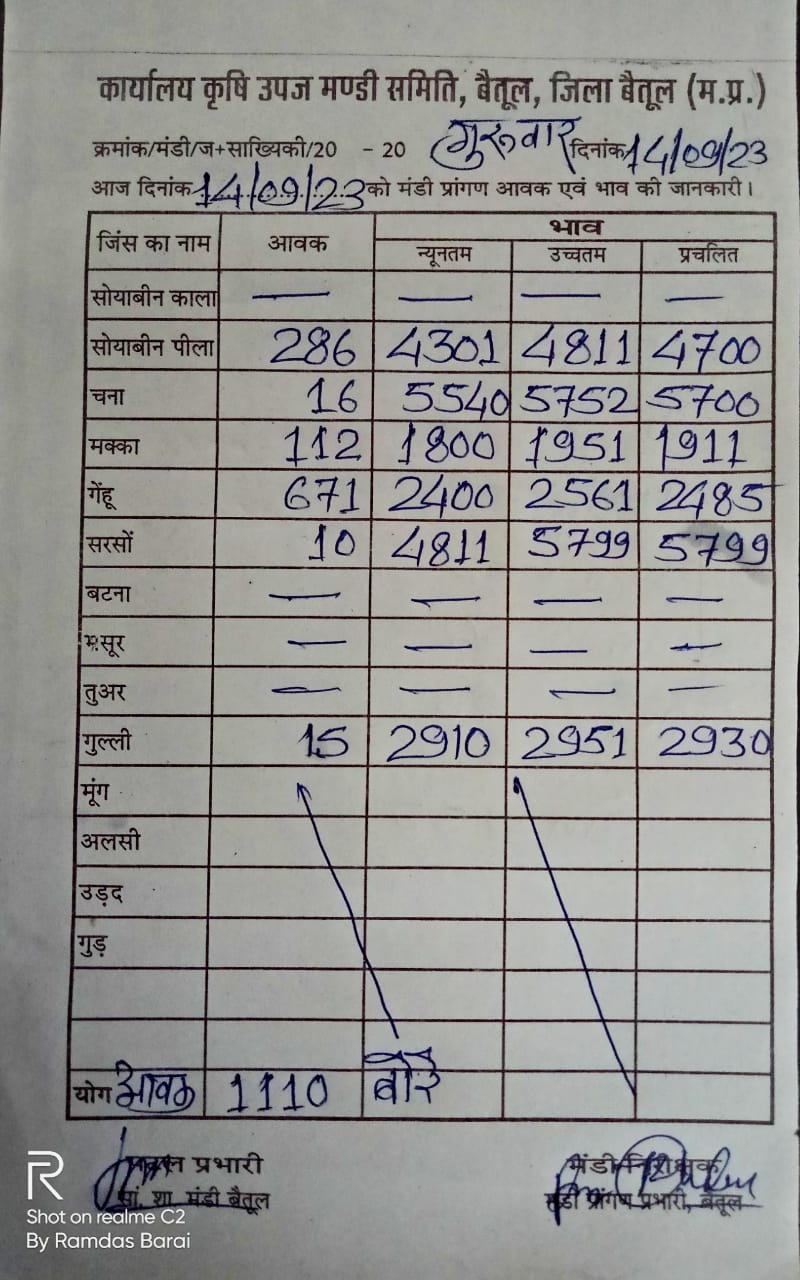 कार्यालय कृषि उपज मण्डी समिति, बैतूल, जिला बैतूल (म.प्र.)
क्रमांक/मंडी/ज+साख्यिकी/20 - 20 गुरूवार दिनांक 14/09/23
आज दिनांक 14/09/23 को मंडी प्रांगण आवक एवं भाव की जानकारी।
जिंस का नाम आवक भाव
न्यूनतम उच्चतम प्रचलित
सोयाबीन काला — — — —
सोयाबीन पीला 286 4301 4811 4700
चना 16 5540 5752 5700
मक्का 112 1800 1951 1911
गेंहू 671 2400 2561 2485
सरसों 10 4811 5799 5799
बटना — — — —
मसूर — — — —
तुअर — — — —
गुल्ली 15 2910 2951 2930
मूंग
अलसी
उड़द
गुड़
योग आवक 1110 बोरे
प्रभारी मंडी निरीक्षक
सां. शा. मंडी बैतूल मंडी प्रांगण प्रभारी, बैतूल
R
Shot on realme C2
By Ramdas Barai